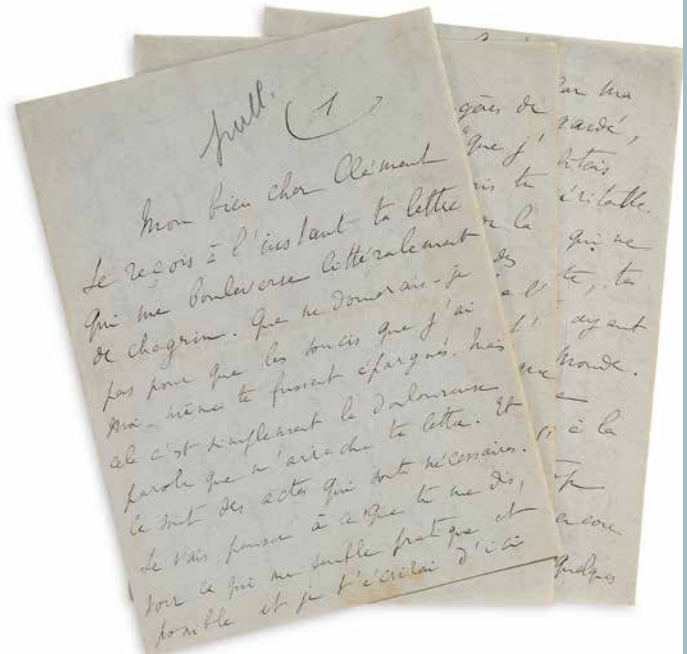 1
Mon bien cher Clément
Je reçois à l'instant ta lettre
qui me bouleverse littéralement
de chagrin. Que ne donnerais-je
pas pour que les soucis que j'ai
moi-même te fussent épargnés. Mais
cela c'est simplement la douloureuse
parole que m'arrache ta lettre. Et
ce sont des actes qui sont nécessaires.
Je vais penser à ce que tu me dis,
voir ce qui me semble pratique et
possible et je t'écrirai d'ici
de
que j'
tu
la
des
l'
ma
éritable.
qui ne
te, ta
ayant
monde.
à la
encore
quelques